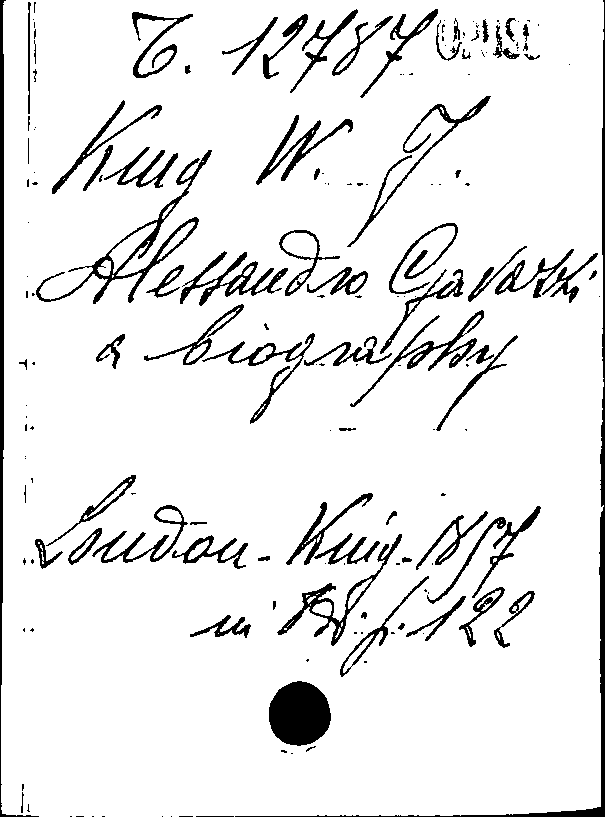 T. 12787 OPUSC
King W. J.
Alessandro Gavazzi
a biography
London - King - 1857
in 18. p. 122